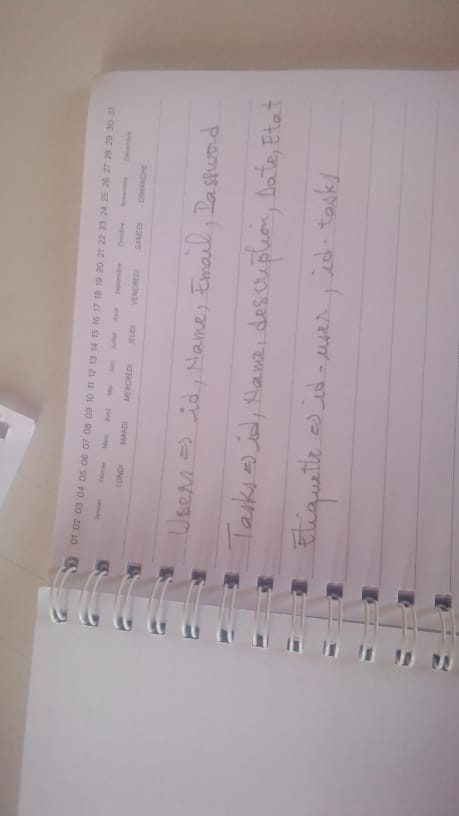 01 02 03 04 05 06 07 08 09 10 11 12 13 14 15 16 17 18 19 20 21 22 23 24 25 26 27 28 29 30 31
Janvier Février Mars Avril Mai Juin Juillet Août Septembre Octobre Novembre Décembre
LUNDI MARDI MERCREDI JEUDI VENDREDI SAMEDI DIMANCHE
Users => id, Name, Email, Password
Tasks => id, Name, description, Date, Etat
Etiquette => id-user, id-tasks